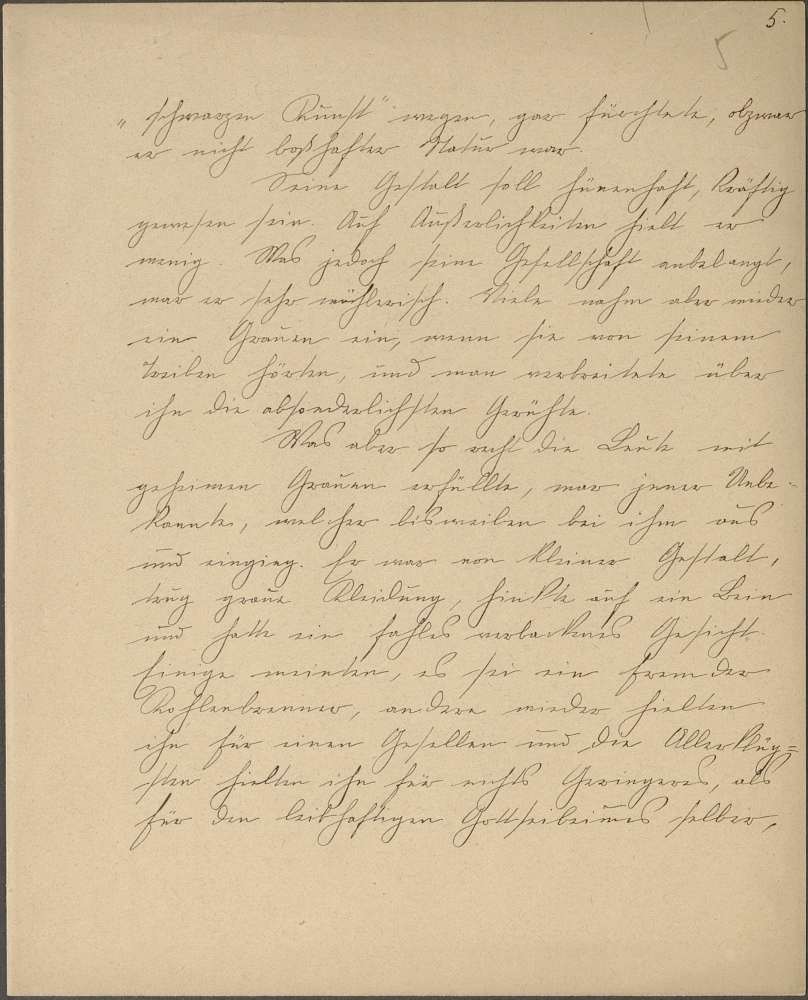 5.
5
„schwarzen Kunst" wegen, gar fürchtete, obzwar
er nicht boßhafter Natur war.
Seine Gestalt soll hünenhaft, kräftig
gewesen sein. Auf Äußerlichkeiten hielt er
wenig. Was jedoch seine Gesellschaft anbelangt,
war er sehr wählerisch. Viele nahm aber wieder
ein Grauen ein, wenn sie von seinem
Treiben hörten, und man verbreitete über
ihn die absonderlichsten Gerüchte.
Was aber so recht die Leute mit
geheimen Grauen erfüllte, war jener Unbe-
kannte, welcher bisweilen bei ihm aus
und einging. Er war von kleiner Gestalt,
trug graue Kleidung, hinkte auf ein Bein
und hatte ein fahles verbackenes Gesicht.
Einige meinten, es sei ein fremder
Kohlenbrenner, andere wieder hielten
ihn für einen Gesellen und die Allerklüg=
sten hielten ihn für nichts Geringeres, als
für den leibhaftigen Gottseibeiuns selber,